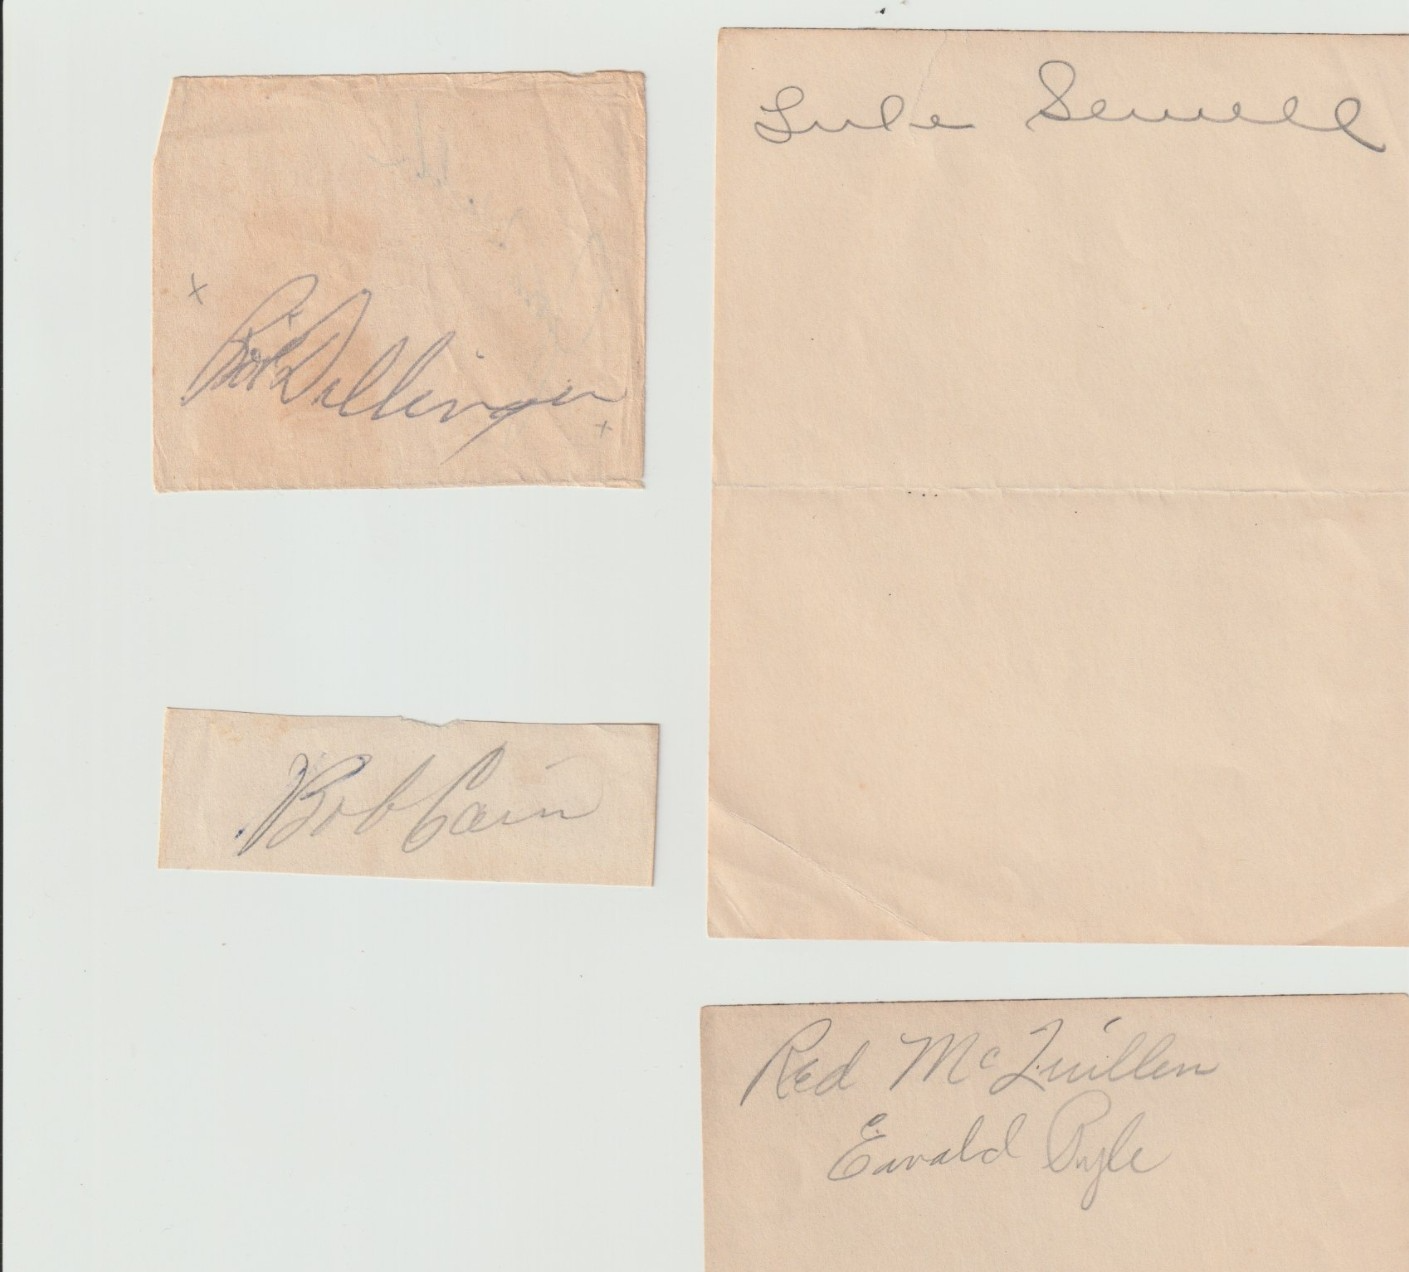 Bob Dillinger
Luke Sewell
Bob Cain
Red McQuillen
Ewald Pyle